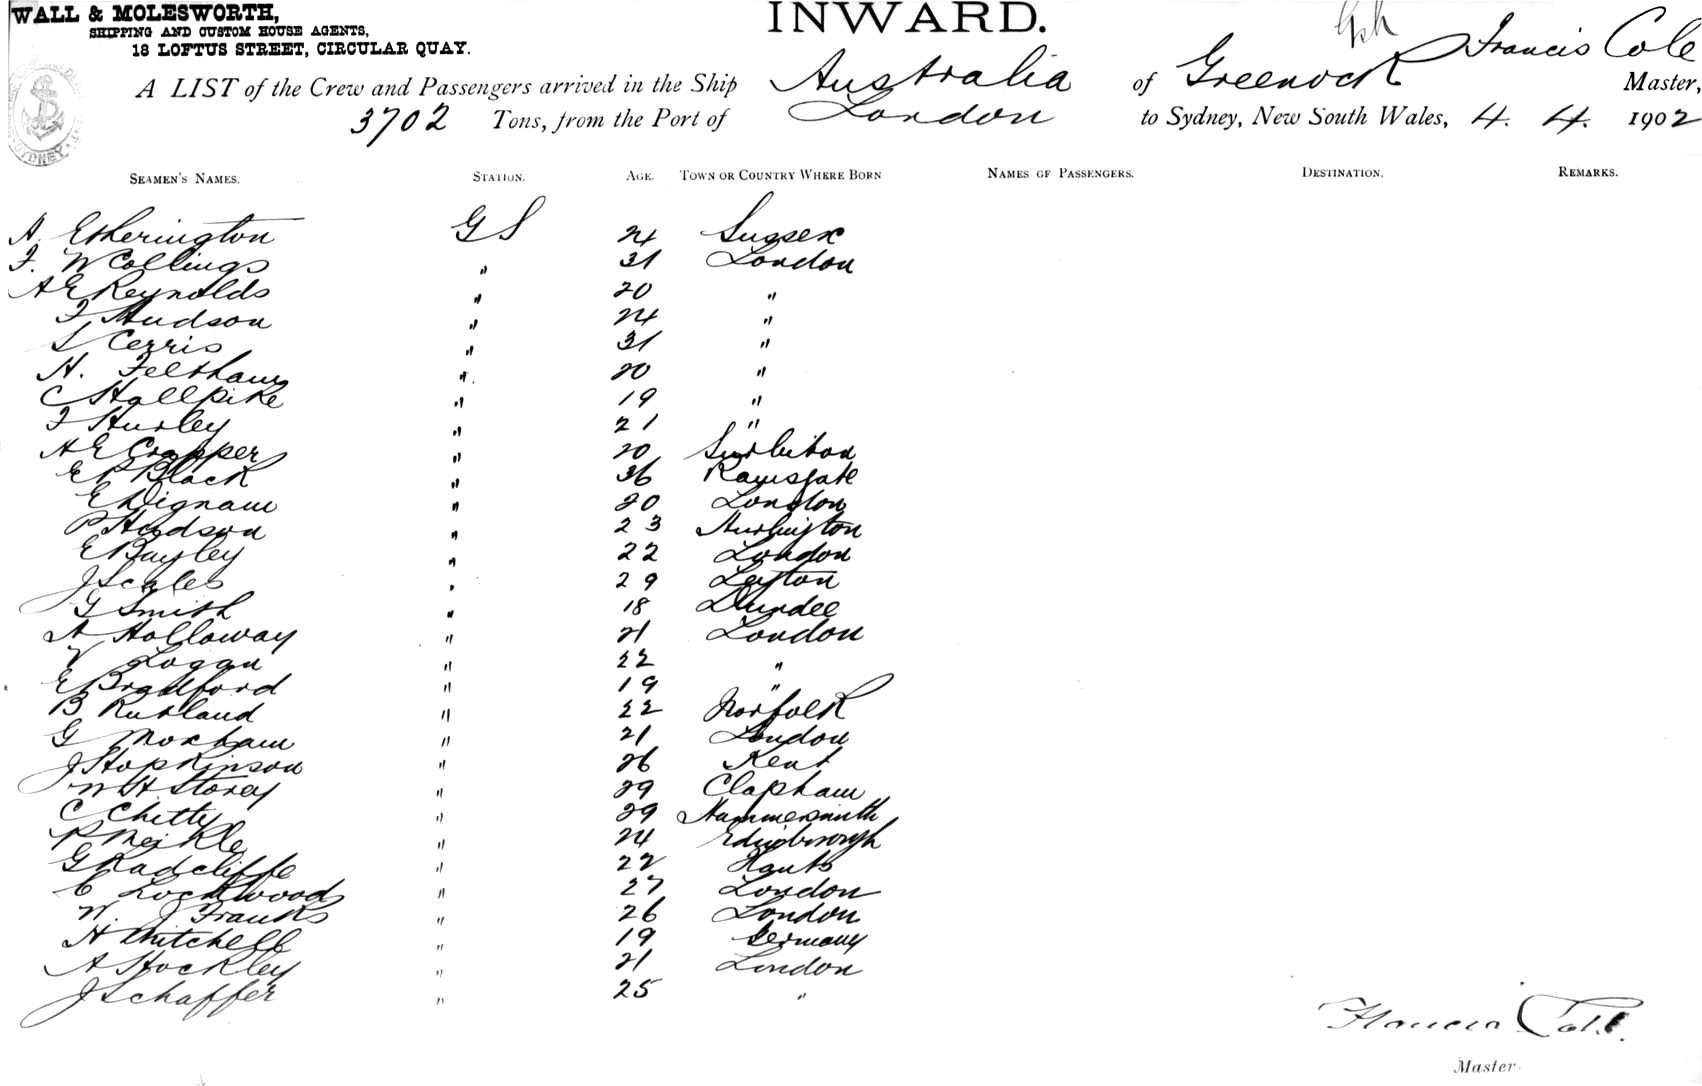 WALL & MOLESWORTH,
SHIPPING AND CUSTOM HOUSE AGENTS,
18 LOFTUS STREET, CIRCULAR QUAY.
INWARD.
A LIST of the Crew and Passengers arrived in the Ship Australia of Greenock Francis Cole Master,
3702 Tons, from the Port of London to Sydney, New South Wales, 4. 4. 1902
SEAMEN'S NAMES. STATION. AGE. TOWN OR COUNTRY WHERE BORN NAMES OF PASSENGERS. DESTINATION. REMARKS.
A. Etherington G S 24 Sussex
F. W Collings " 31 London
A E Reynolds " 20 "
F Hudson " 24 "
S Cerris " 31 "
H. Feltham " 20 "
C Hallpike " 19 "
F Hurley " 21 "
A E Crapper " 20 Surbiton
E P Black " 36 Ramsgate
E Dignam " 20 London
P Hudson " 23 Hurlington
E Bayley " 22 London
J Scales " 29 Leyton
G Smith " 18 Dundee
A Holloway " 21 London
V Logan " 22 "
E Bradford " 19 "
B Rutland " 22 Norfolk
G Moxham " 21 London
J Hopkinson " 26 Kent
W H Storey " 29 Clapham
C Chitty " 29 Hammersmith
P Meikle " 24 Edinborough
G Radcliffe " 22 Hants
C Lockwood " 27 London
W. J Franks " 26 London
H Mitchell " 19 Germany
A Hockley " 21 London
J Schaffer " 25 "
Francis Cole.
Master.
SYDNEY